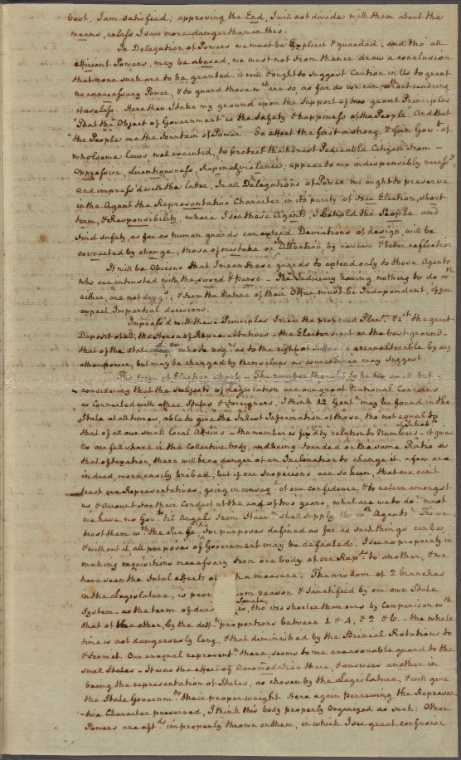 but, I am satisfied, approving the End, I will not divide with them about the
means, unless I saw more danger than in this.
In Delegation of Powers we must be Explicit & guarded, and tho all
efficient Powers, may be abused, we must not from thence draw a conclusion
that none such are to be granted. it will & ought to suggest Caution in Us to grant
no unnecessary Power, & to guard those
useless. Here then I take my ground upon the Support of two great Principles
"That the Object of Government is the Safety & happiness of the People. And that
"the People are the Fountain of Power". To effect the first a strong & Firm Govt of
wholsome Laws, well executed, to protect the honest Peaceable Citizen from
Oppression, Licentiousness, appear to me indispensibly necessy.
And impress'd with the latter, In all Delegations of Power we ought to preserve
in the Agent the Representative Character, in its purity of Free Election, short
term, & Responsibility, where I see these Agents, I behold the People and
find safety, as far as human guards can extend. Deviations of design, will be
corrected by change, those of mistake or by review & better reflection.
It will be Observed that I mean these guards to extend only to those Agents
who are intrusted with the sword & purse - The Judiciary having nothing to do wth
either, are not & from the Nature of their Office must be Independent, if you
expect Impartial decisions.
Impress'd with these Principles I view the proposed Plan. & 1st the great
Deposit of all, the House of Representatives - the Electors put on the best ground.
that of the State whose body as to the right of are unalterable by any
other power, but may be changed by themselves as convenience may suggest
The term of Election short - The number thought to be too small but
considering that the Subjects of Legislation are our great National Concerns
as connected with other States & Foreigners. I think 12 Gentn may be found in the
State at all times, able to give the fullest Information of those, tho not equal to
that of all our small Local Affairs - the number is fixed by relation to Numbers. it gives
Us our full share in the Collective body, and being founded on the same Ratio as
that of taxation, there will be no danger of an Inclination to change it. a few are
indeed more easily bribed; but if our Suspicions are so keen, that we can't
trust our Representatives, going in consequence of our confidence, & to return amongst
us & Account for their Conduct at the end of two years, what are we to do? must
we have no Govt 'til Angels from Heaven shall supply Us with Agents?
trust them with the Purse for purposes defined as far as such things can be,
& without it all purposes of Government may be defeated. I see no propriety in
making requisitions necessary from one body of our Repves to another, & we
have seen the fatal effects of such a measure. The wisdom of 2 branches
in the Legislature, is from reason & sanctified by our own State
System - as the term of is, the Senate, is shorter than ours by Comparison with
that of the other, by the difft proportions between 1 & 4, & 2 & 6. the whole
time is not dangerously long, & that diminished by the Biennial Rotations to
& from it. Our unequal representn there, seems to me a reasonable guard to the
small States - It was the effect of Accomodation there, & answers another in
being the representation of States, as chosen by the Legislature, & will give
the State Governmts their proper weight. Here again perceiving the Represen-
-tive Character preserved, I think this body properly Organized as such. Other
Powers are oft improperly thrown on them, in which I see great confusion